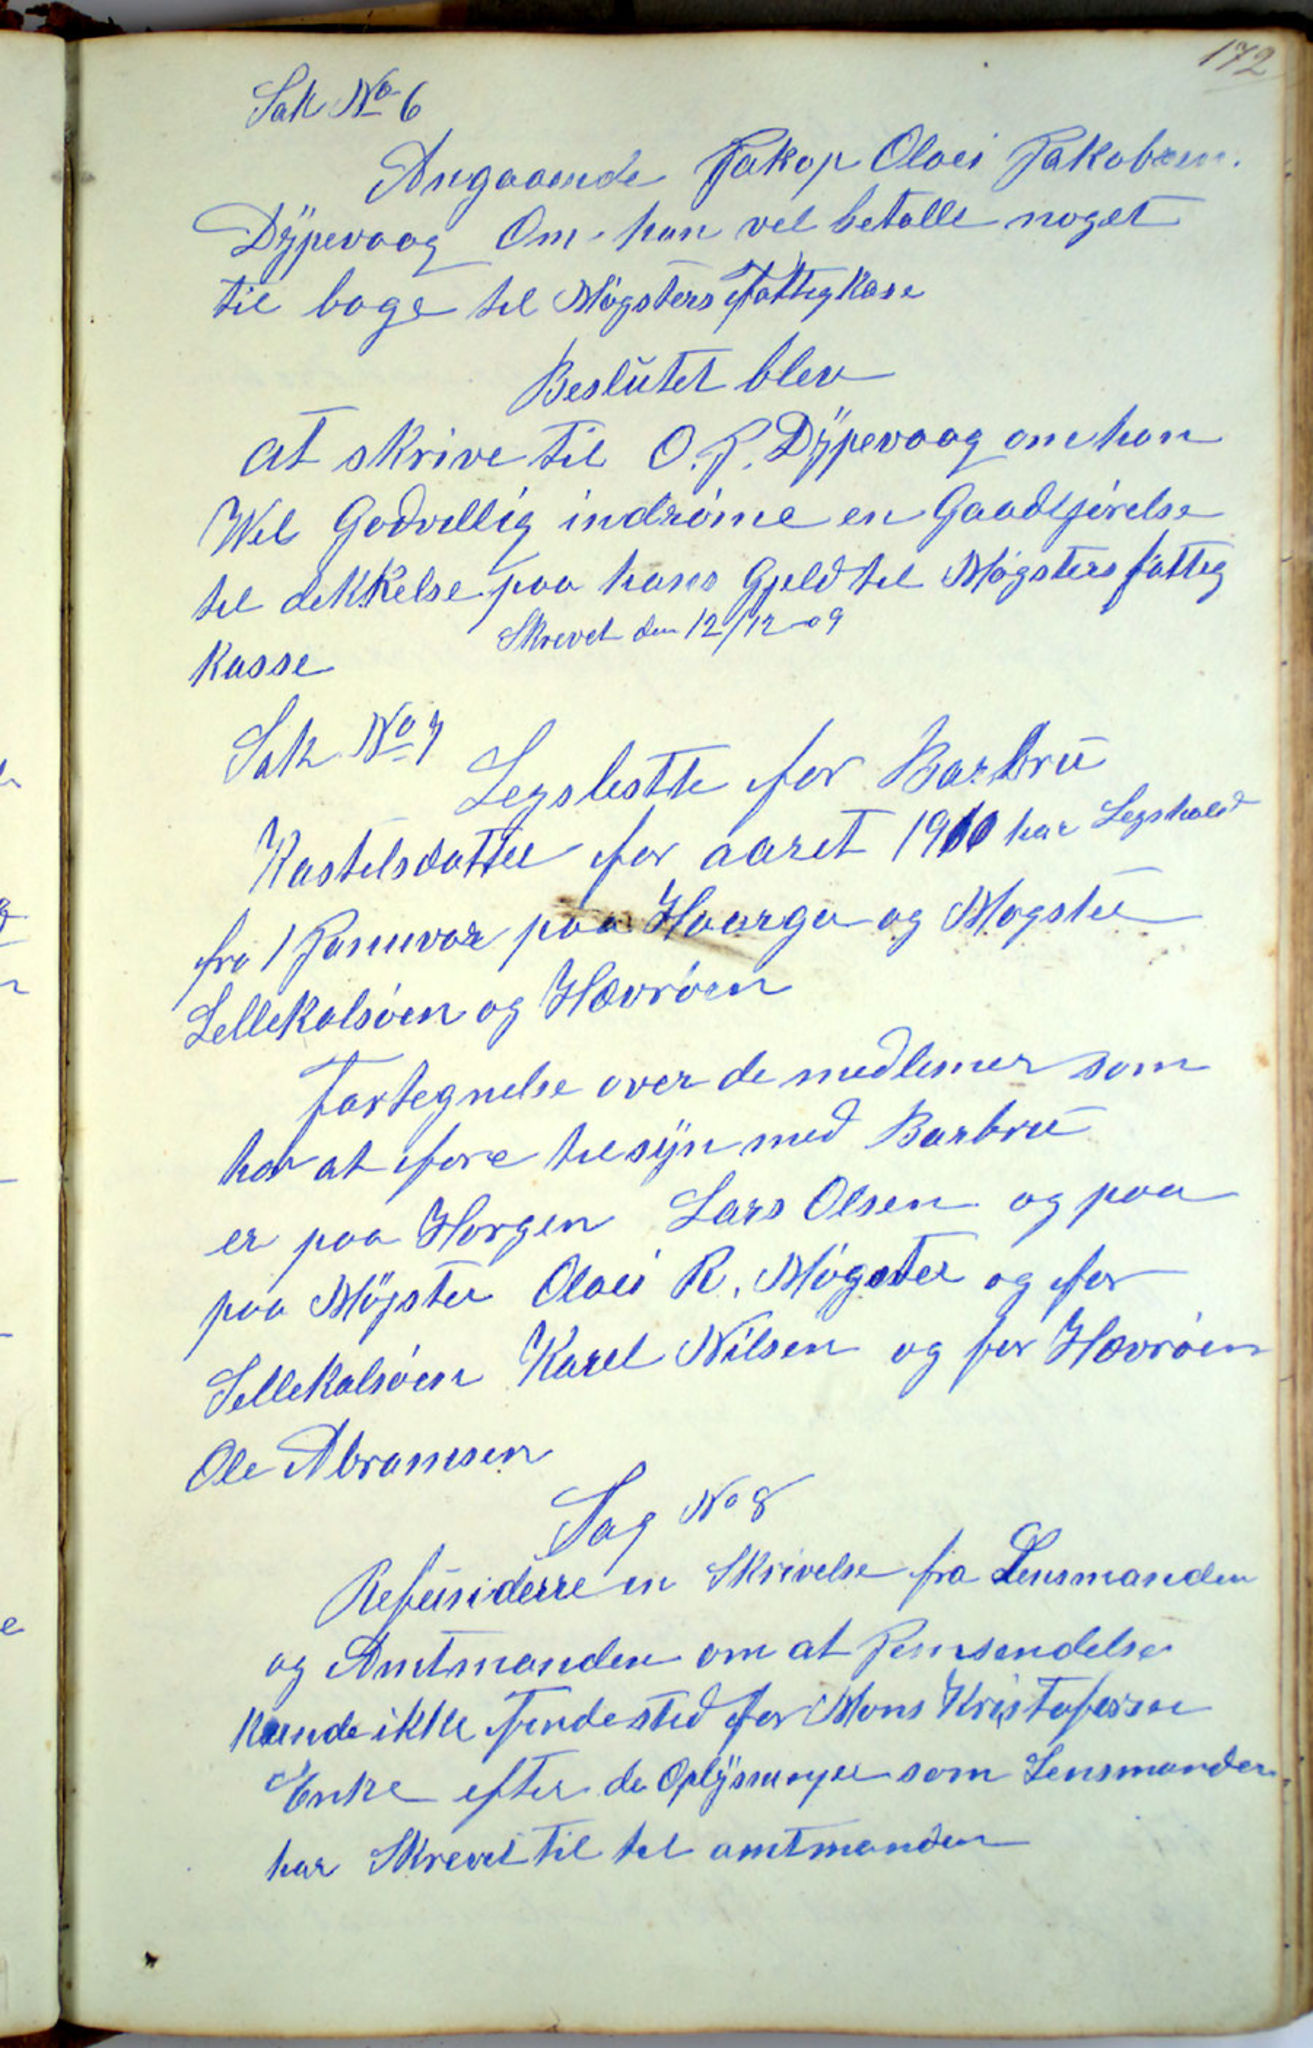 172
Sak No 6
Angaaende Jakop Olai Jakobsen.
Dÿpevaag Om han vel betalle noget
til bage tel Møgsters fattigkase
Beslutet blev
at skrive til O. J. Dÿpevaag om han
Wel Godvellig indrøme en Gaadtjørelse
tel dekkelse paa hans Gjeld tel Møgsters fatteg
Skrevet den 12/12 09
kasse
Sak No 7
Legslestte for Barbru
Kastelsdatter for aaret 1910 har Legshold
fra 1 Januvar paa Haarga og Mogster
Lellekalsøen og Hævrøen
Fartegnelse over de medlemer som
har at føre telsÿn med Barbru
er paa Horgen Lars Olsen og paa
paa Møgster Olai R. Møgster og for
Lellekalsøen Karel Nilsen og for Hævrøen
Ole Abramsen
Sag No 8
Refusiderre en Skrivelse fra Lensmanden
og Amtmanden om at Jemsendelse
kunde ikke finde sted for Mons Kristofersen
Enke efter de Oplÿsninger som Lensmanden
har Skrevet til tel amtmanden